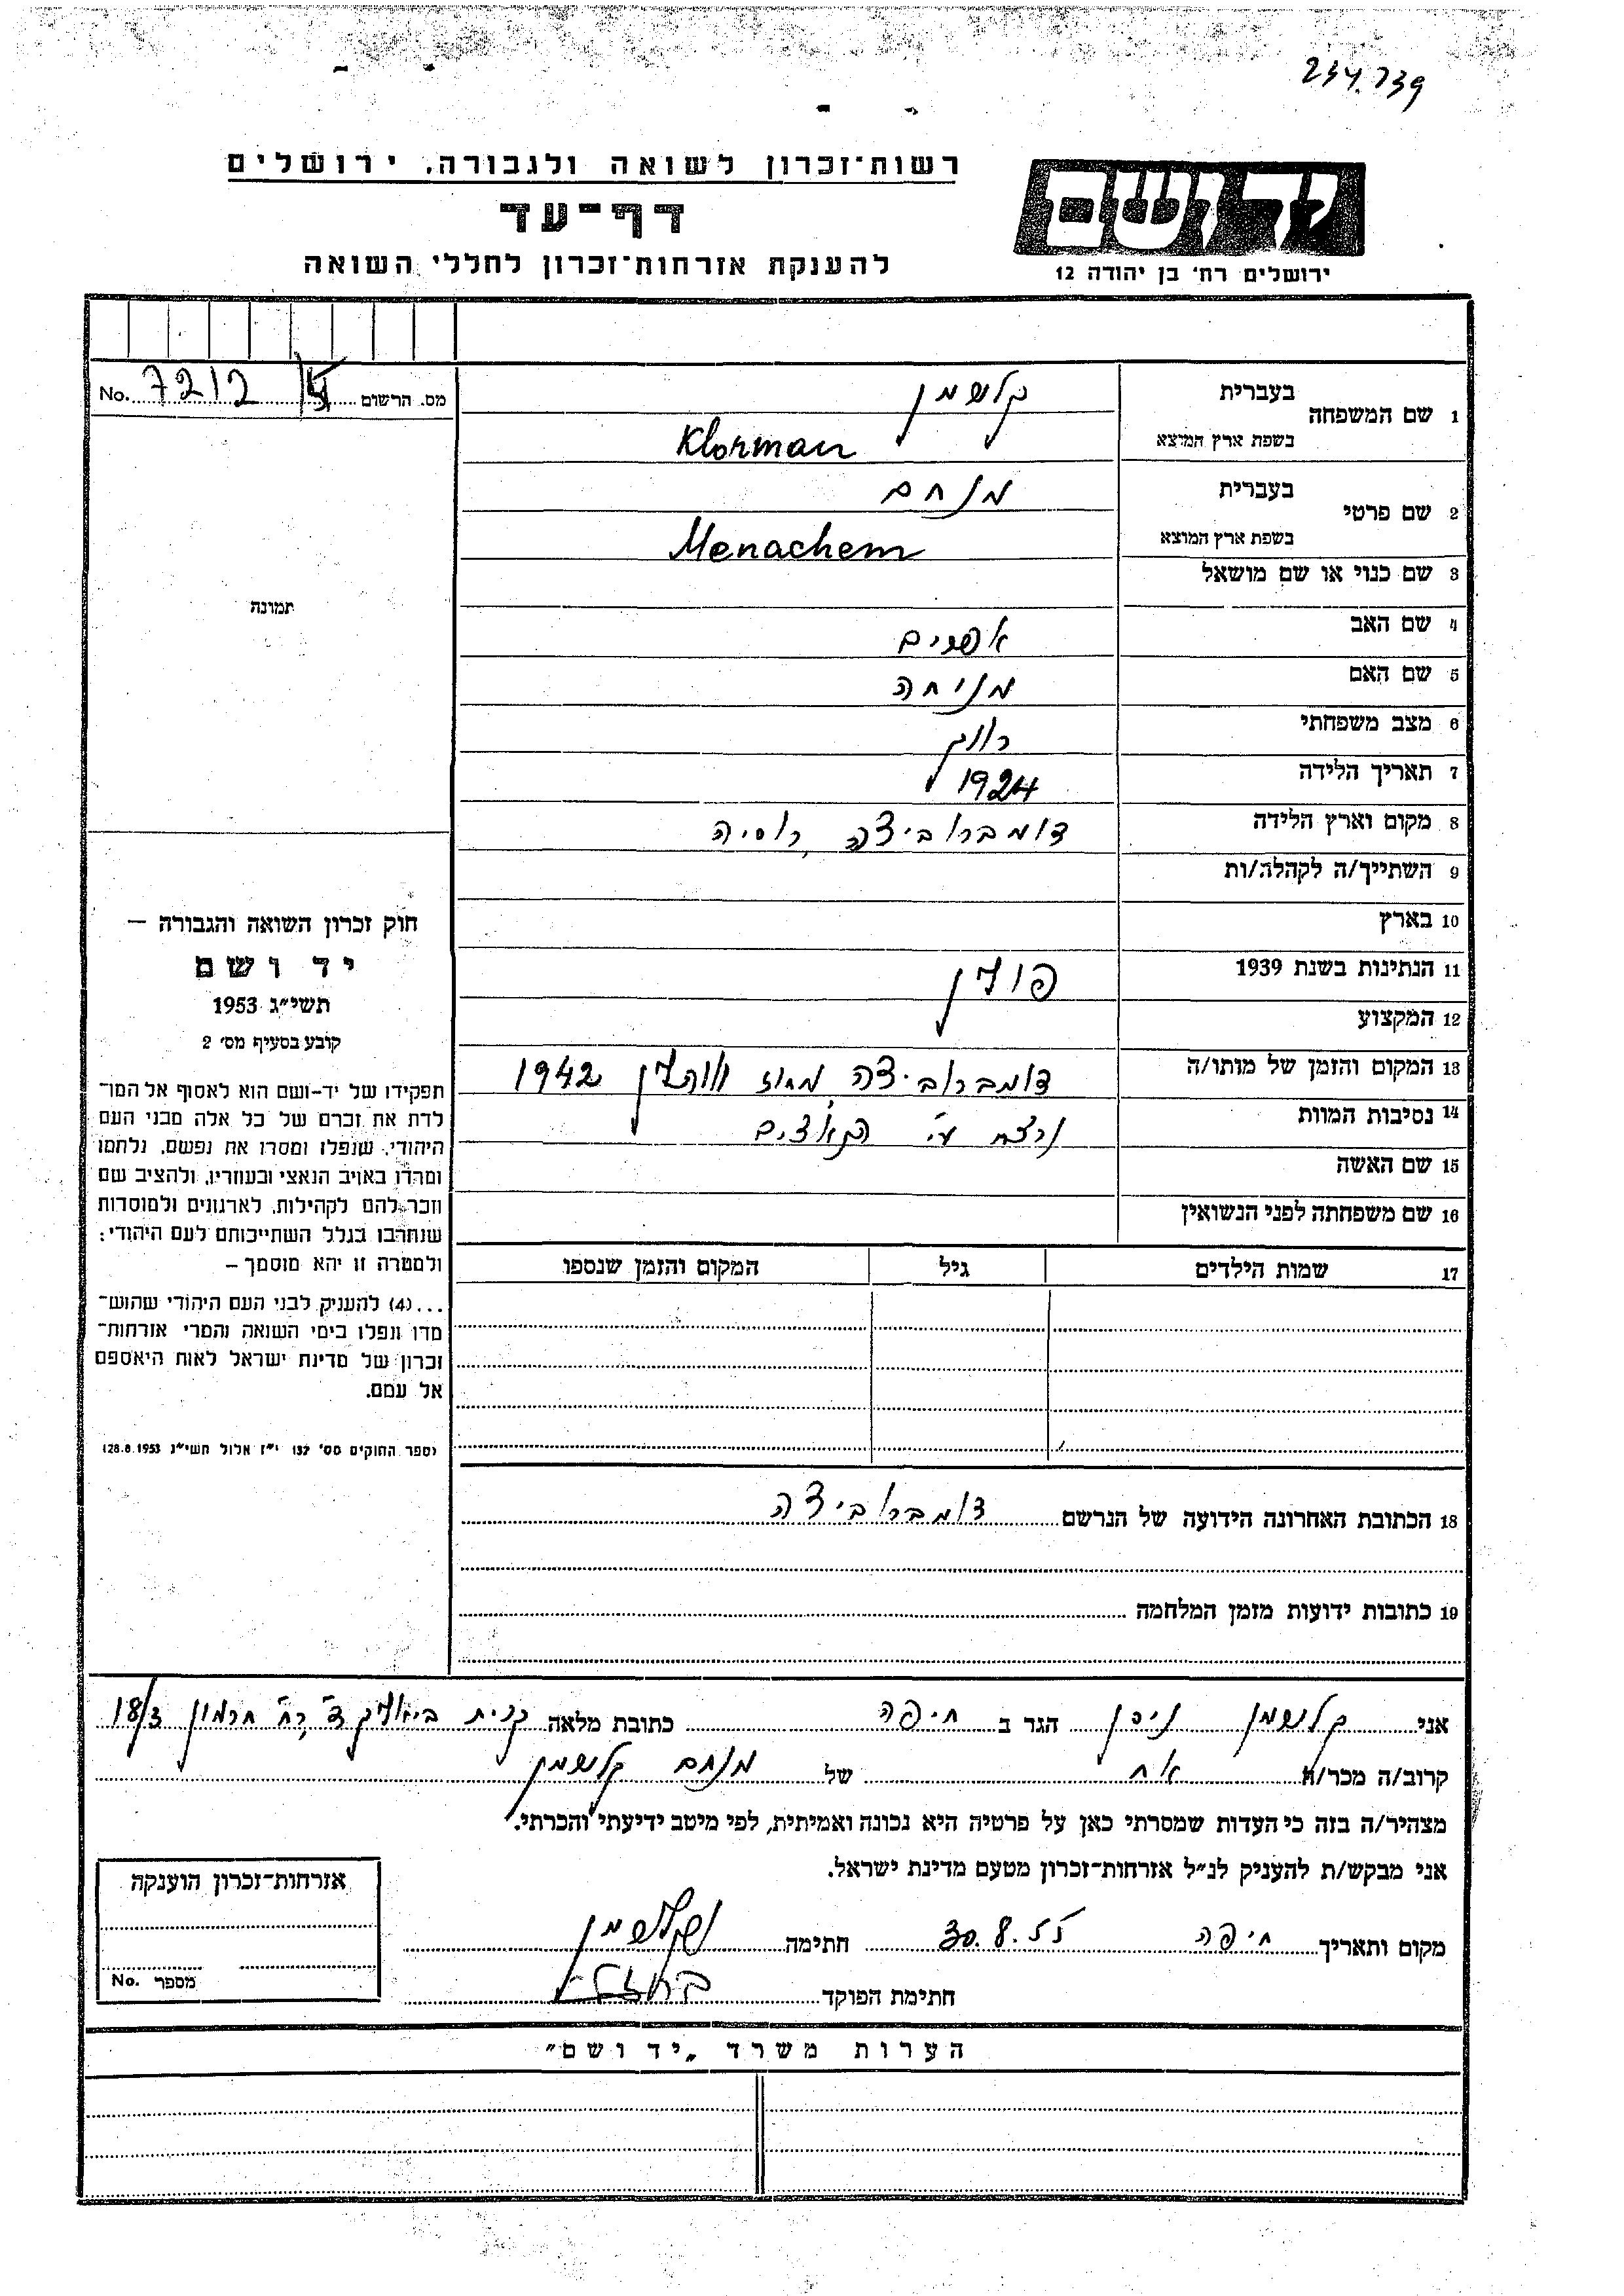 234.739
רשות־זכרון לשואה ולגבורה, ירושלים
דף־עד
להענקת אזרחות־זכרון לחללי השואה
יד ושם
ירושלים רח׳ בן יהודה 12
מס. הרשום 7212 No.
1 שם המשפחה
בעברית קלורמן
בשפת ארץ המוצא Klorman
2 שם פרטי
בעברית מנחם
בשפת ארץ המוצא Menachem
3 שם כנוי או שם מושאל
4 שם האב אפרים
5 שם האם מניחה
6 מצב משפחתי רווק
7 תאריך הלידה 1924
8 מקום וארץ הלידה דומברוביצה, רוסיה
9 השתייך/ה לקהלה/ות
10 בארץ
11 הנתינות בשנת 1939 פולין
12 המקצוע
13 המקום והזמן של מותו/ה דומברוביצה מחוז ווהלין 1942
14 נסיבות המוות נרצח ע״י הנאצים
15 שם האשה
16 שם משפחתה לפני הנשואין
17 שמות הילדים גיל המקום והזמן שנספו
תמונה
חוק זכרון השואה והגבורה –
יד ושם
תשי״ג 1953
קובע בסעיף מס׳ 2
תפקידו של יד-ושם הוא לאסוף אל המו־
לדת את זכרם של כל אלה מבני העם
היהודי, שנפלו ומסרו את נפשם, נלחמו
ומרדו באויב הנאצי ובעוזריו, ולהציב שם
וזכר להם לקהילות, לארגונים ולמוסדות
שנחרבו בגלל השתייכותם לעם היהודי;
ולמטרה זו יהא מוסמך –
...(4) להעניק לבני העם היהודי שהוש־
מדו ונפלו בימי השואה והמרי אזרחות־
זכרון של מדינת ישראל לאות היאספם
אל עמם.
(ספר החוקים מס׳ 132 י״ז אלול תשי״ג 28.8.1953)
18 הכתובת האחרונה הידועה של הנרשם דומברוביצה
19 כתובות ידועות מזמן המלחמה
אני קלורמן ניסן הגר ב חיפה כתובת מלאה קרית ביאליק ד׳ רח׳ חרמון 18/3
קרוב/ה מכר/ה אח של מנחם קלורמן
מצהיר/ה בזה כי העדות שמסרתי כאן על פרטיה היא נכונה ואמיתית, לפי מיטב ידיעתי והכרתי.
אני מבקש/ת להעניק לנ״ל אזרחות־זכרון מטעם מדינת ישראל.
מקום ותאריך חיפה 30.8.55 חתימה נ קלורמן
חתימת הפוקד
אזרחות־זכרון הוענקה
מספר No.
הערות משרד „יד ושם״